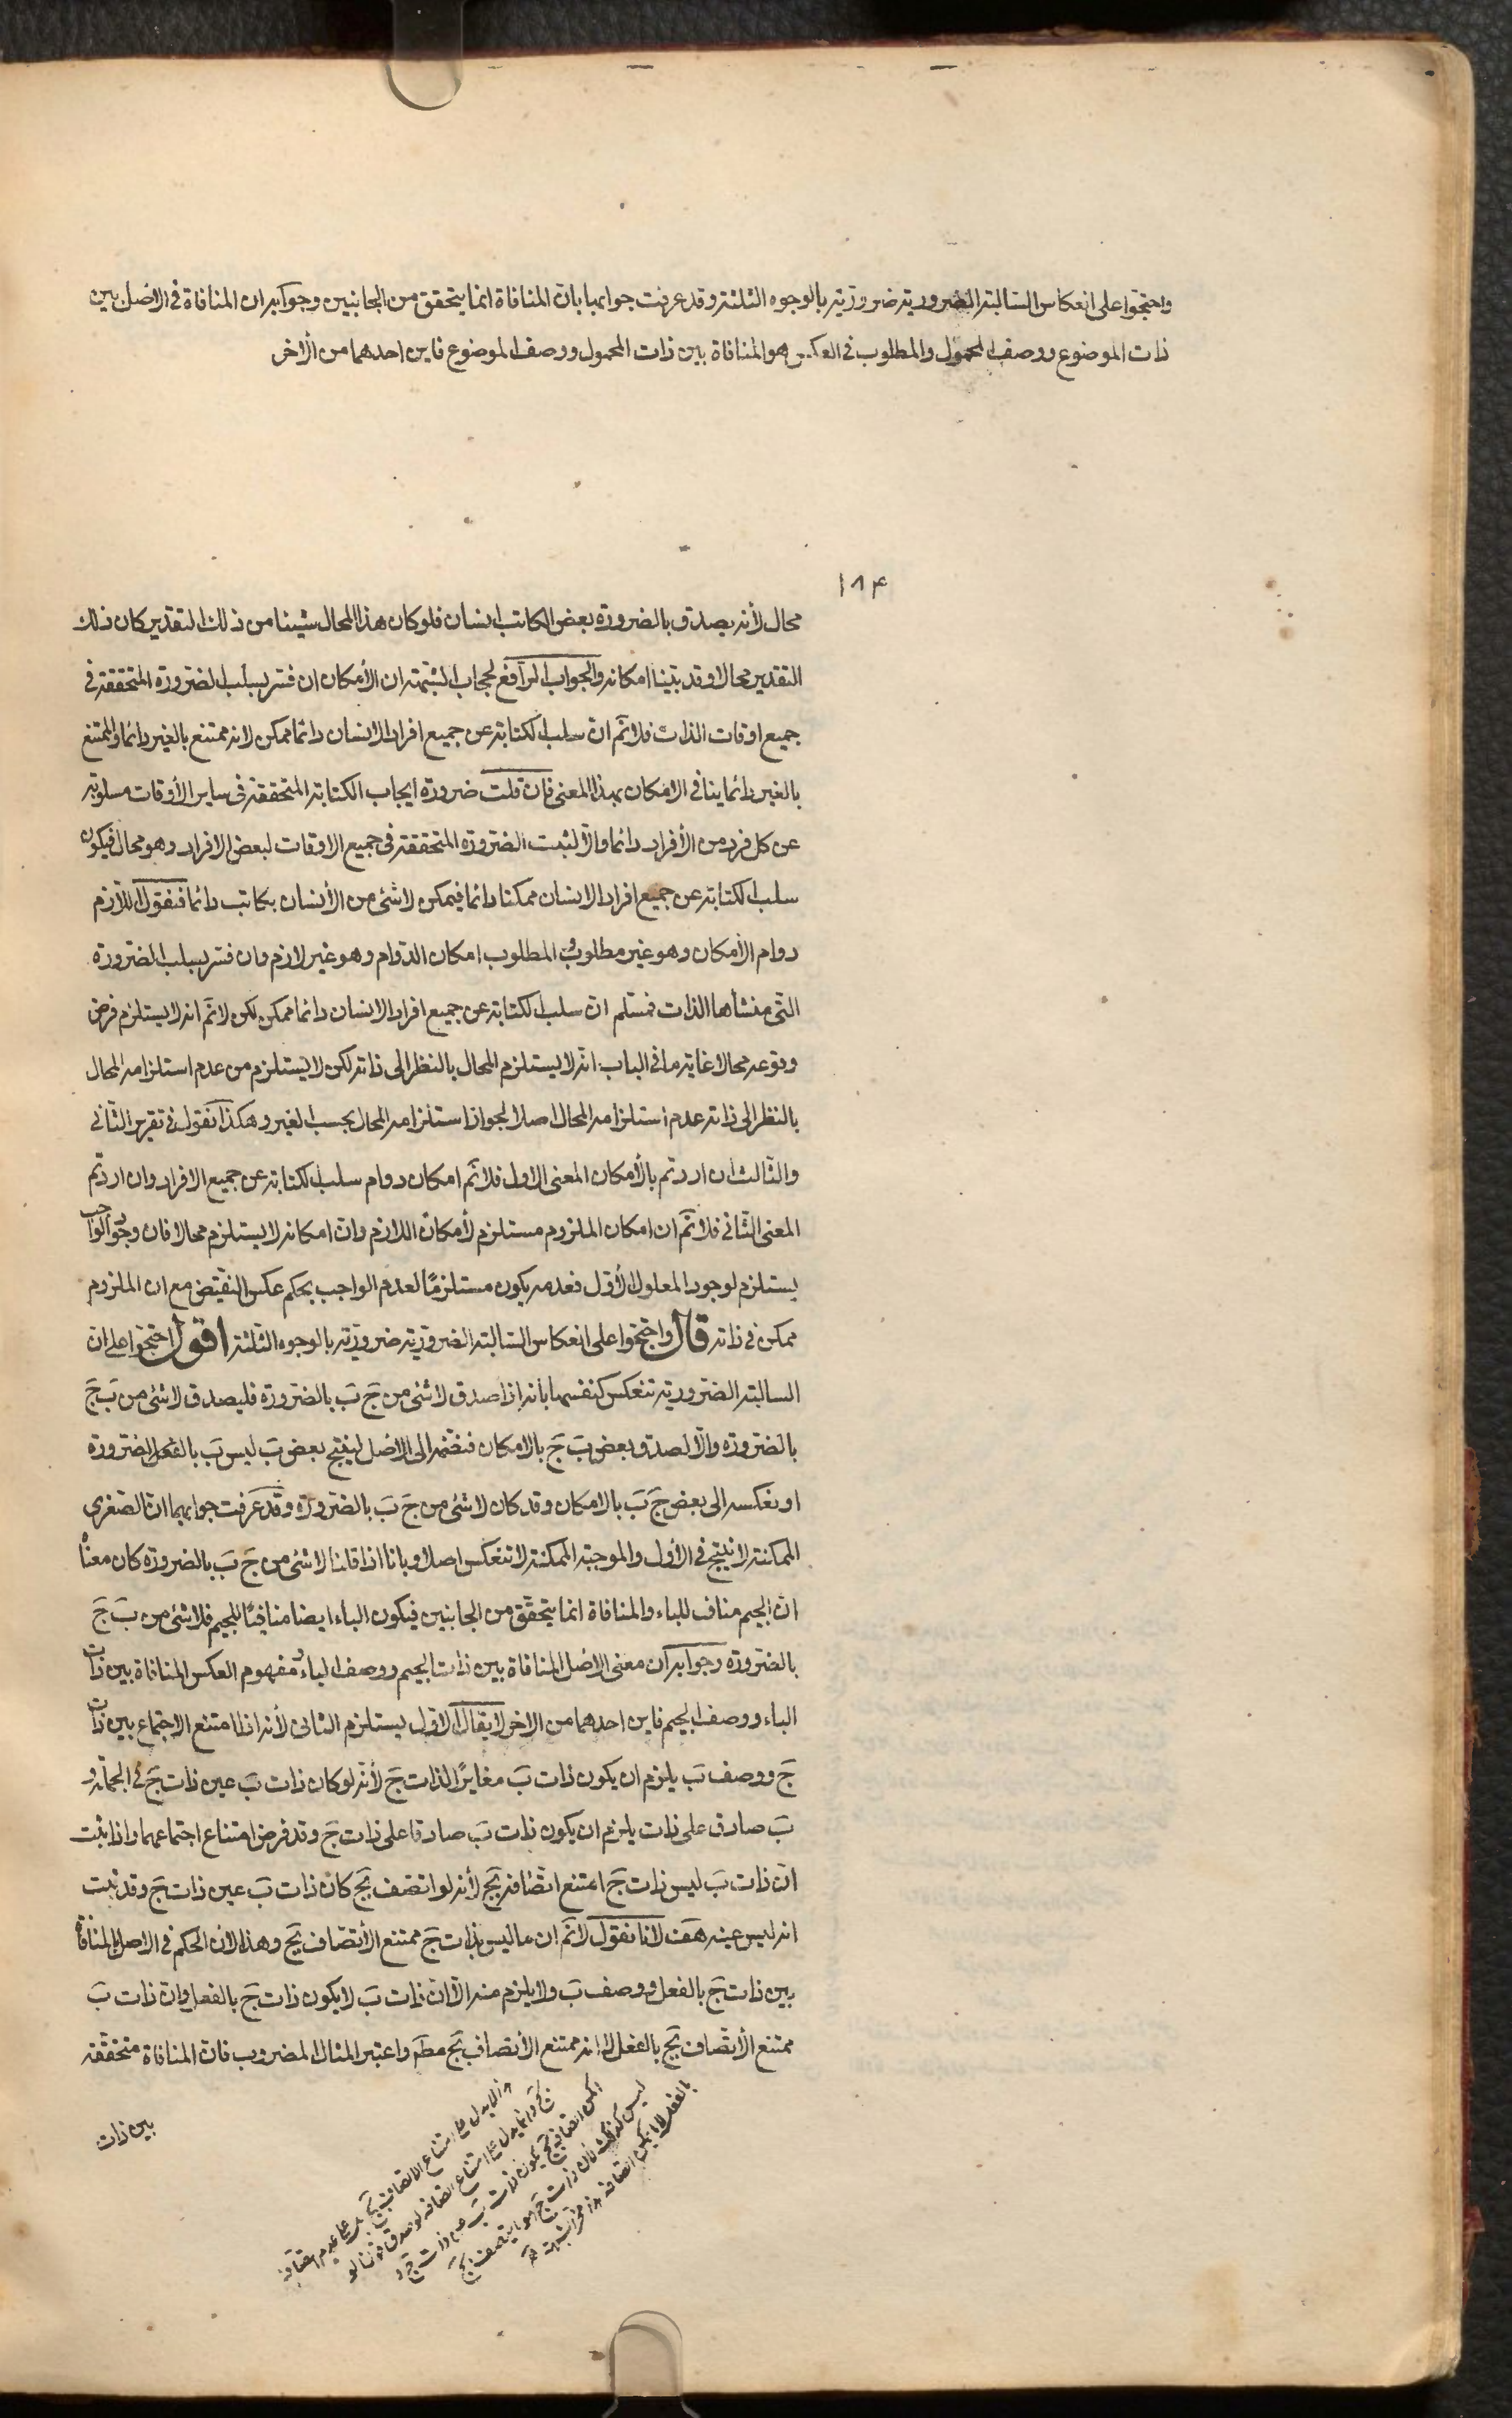 واحتجوا على انعكاس السالبة الضرورية ضرورية بالوجوه الثلثة وقد عرفت جوابها بان المنافاة انما يتحقق من الجانبين وجوابه ان المنافاة في الاصل بين
ذات الموضوع ووصف المحمول والمطلوب في العكس هو المنافاة بين ذات المحمول ووصف الموضوع فاين احدهما من الأخر
١٨۴
محال لأنه يصدق بالضرورة بعض الكاتب انسان فلو كان هذا المحال شيئا من ذلك التقدير كان ذلك
التقدير محالا وقد بينا امكانه والجواب الرافع لحجاب الشبهة ان الأمكان ان فسر بسلب الضرورة المتحققة في
جميع اوقات الذات فلانم ان سلب الكتابة عن جميع افراد الانسان دائما ممكن لانه ممتنع بالغير دائما والممتنع
بالغير دائما ينافي الامكان بهذا المعنى فان قلت ضرورة ايجاب الكتابة المتحققة في ساير الأوقات مسلوبة
عن كل فرد من الأفراد دائما والا لثبت الضرورة المتحققة في جميع الاوقات لبعض الافراد وهو محال فيكون
سلب الكتابة عن جميع افراد الانسان ممكنا دائما فيمكن لا شئ من الأنسان بكاتب دائما فنقول اللازم
دوام الأمكان وهو غير مطلوب والمطلوب امكان الدوام وهو غير لازم وان فسر بسلب الضرورة
التي منشأها الذات فمسلم ان سلب الكتابة عن جميع افراد الانسان دائما ممكن لكن لانم انه لا يستلزم فرض
وقوعه محالا غاية ما في الباب انه لا يستلزم المحال بالنظر الى ذاته لكن لا يستلزم من عدم استلزامه المحال
بالنظر الى ذاته عدم استلزامه المحال اصلا لجواز استلزامه المحال بحسب الغير وهكذا نقول في تقرير الثاني
والثالث ان اردتم بالأمكان المعنى الاول فلانم امكان دوام سلب الكتابة عن جميع الافراد وان اردتم
المعنى الثاني فلانم ان امكان الملزوم مستلزم لأمكان اللازم وان امكانه لا يستلزم محالا فان وجود الواجب
يستلزم لوجود المعلول الأول فعدمه يكون مستلزمًا لعدم الواجب بحكم عكس النقيض مع ان الملزوم
ممكن في ذاته قال واحتجوا على انعكاس السالبة الضرورية ضرورية بالوجوه الثلثة اقول احتجوا على ان
السالبة الضرورية تنعكس كنفسها بانه اذا صدق لا شئ من ج ب بالضرورة فليصدق لا شئ من ب ج
بالضرورة والا لصدق بعض ب ج بالامكان فنضمه الى الاصل لينتج بعض ب ليس ب بالضرورة
او نعكسه الى بعض ج ب بالامكان وقد كان لا شئ من ج ب بالضرورة وقد عرفت جوابهما ان الصغرى
الممكنة لا ينتج في الأول والموجبة الممكنة لا تنعكس اصلا وبانا اذا قلنا لا شئ من ج ب بالضرورة كان معناه
ان الجيم مناف للباء والمنافاة انما يتحقق من الجانبين فيكون الباء ايضا منافيًا للجيم فلا شئ من ب ج
بالضرورة وجوابه ان معنى الاصل المنافاة بين ذات الجيم ووصف الباء ومفهوم العكس المنافاة بين ذات
الباء ووصف الجيم فاين احدهما من الاخر لا يقال الاول يستلزم الثاني لأنه اذا امتنع الاجتماع بين ذات
ج ووصف ب يلزم ان يكون ذات ب مغايرًا لذات ج لأنه لو كان ذات ب عين ذات ج في الجملة و
ب صادق على ذات يلزم ان يكون ذات ب صادقا على ذات ج وقد فرض امتناع اجتماعهما واذا ثبت
ان ذات ب ليس ذات ج امتنع اتصافه بج لأنه لو اتصف بج كان ذات ب عين ذات ج وقد ثبت
انه ليس عينه هف لانا نقول لانم ان ما ليس بذات ج ممتنع الأتصاف بج وهذا لان الحكم في الاصل بالمنافاة
بين ذات ج بالفعل ووصف ب ولا يلزم منه الا ان ذات ب لا يكون ذات ج بالفعل وان ذات ب
ممتنع الأتصاف بج بالفعل لا انه ممتنع الأتصاف بج مطم واعتبر المثال المضروب فان المنافاة متحققة
بين ذات